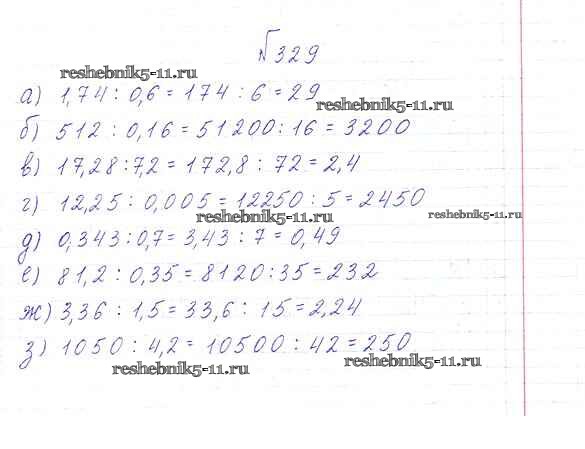 №329
reshebnik5-11.ru
а) 1,74 : 0,6 = 174 : 6 = 29
reshebnik5-11.ru
б) 512 : 0,16 = 51200 : 16 = 3200
в) 17,28 : 7,2 = 172,8 : 72 = 2,4
г) 12,25 : 0,005 = 12250 : 5 = 2450
reshebnik5-11.ru
reshebnik5-11.ru
д) 0,343 : 0,7 = 3,43 : 7 = 0,49
е) 81,2 : 0,35 = 8120 : 35 = 232
ж) 3,36 : 1,5 = 33,6 : 15 = 2,24
з) 1050 : 4,2 = 10500 : 42 = 250
reshebnik5-11.ru
reshebnik5-11.ru